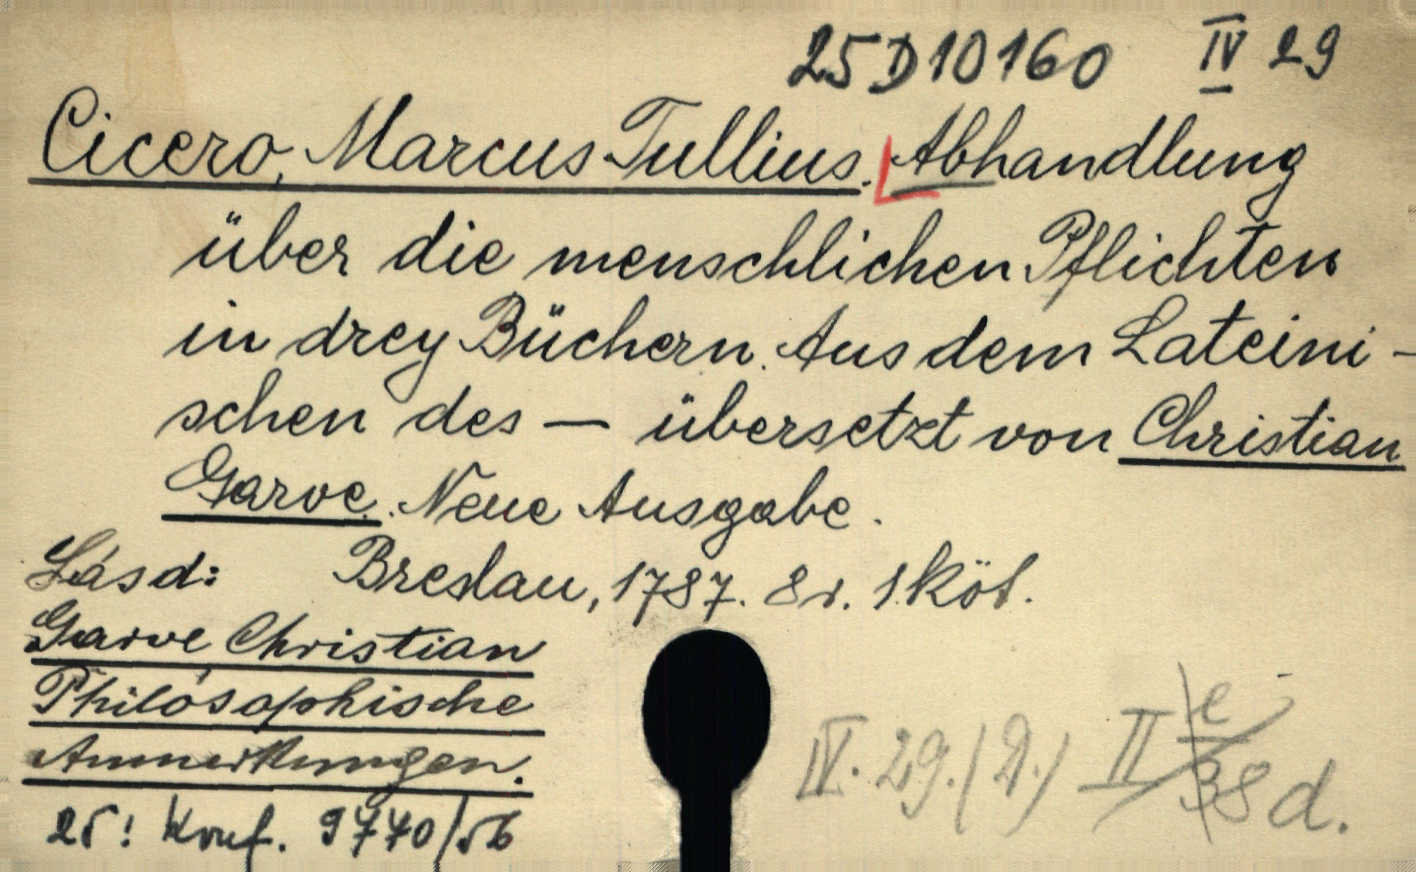 25D10160 IV 29
Cicero, Marcus Tullius. Abhandlung
über die menschlichen Pflichten
in drey Büchern. Aus dem Lateini-
schen des — übersetzt von Christian
Garve. Neue Ausgabe.
Lásd: Breslau, 1787. 8r. 1 köt.
Garve Christian
Philosophische
Anmerkungen.
IV. 29. (2.) II e/38 d.
9770/56